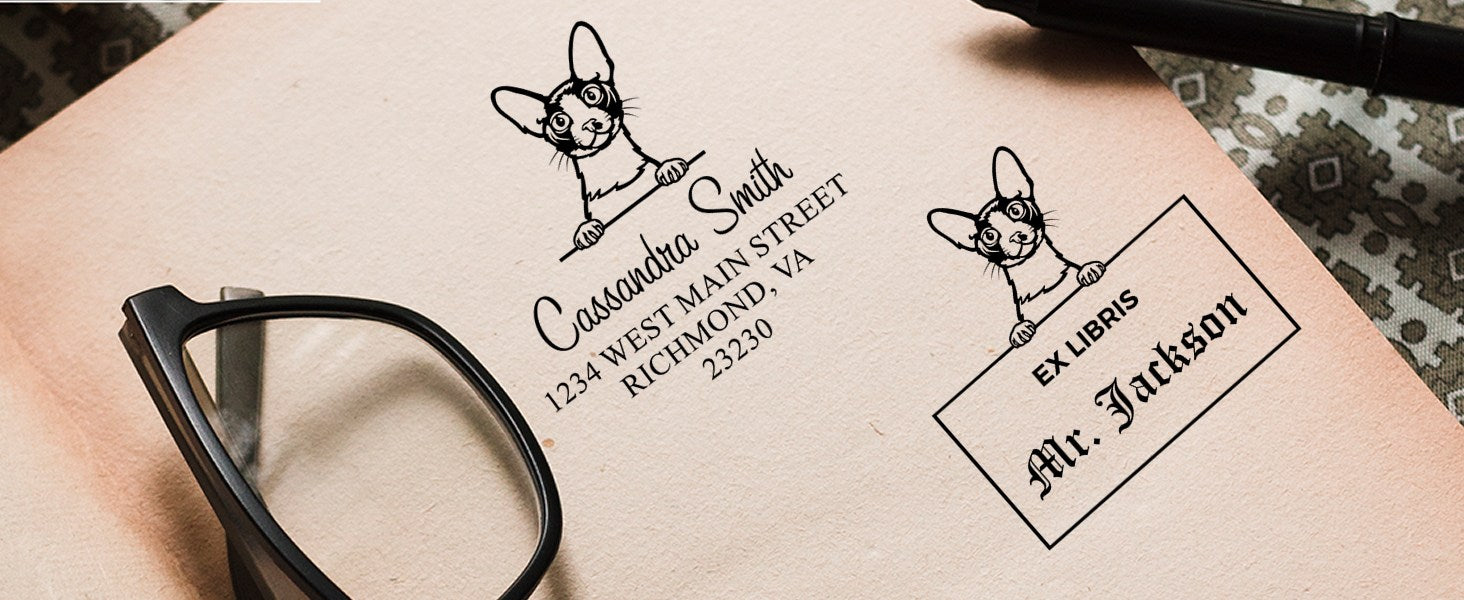 Cassandra Smith
1234 WEST MAIN STREET
RICHMOND, VA
23230
EX LIBRIS
Mr. Jackson